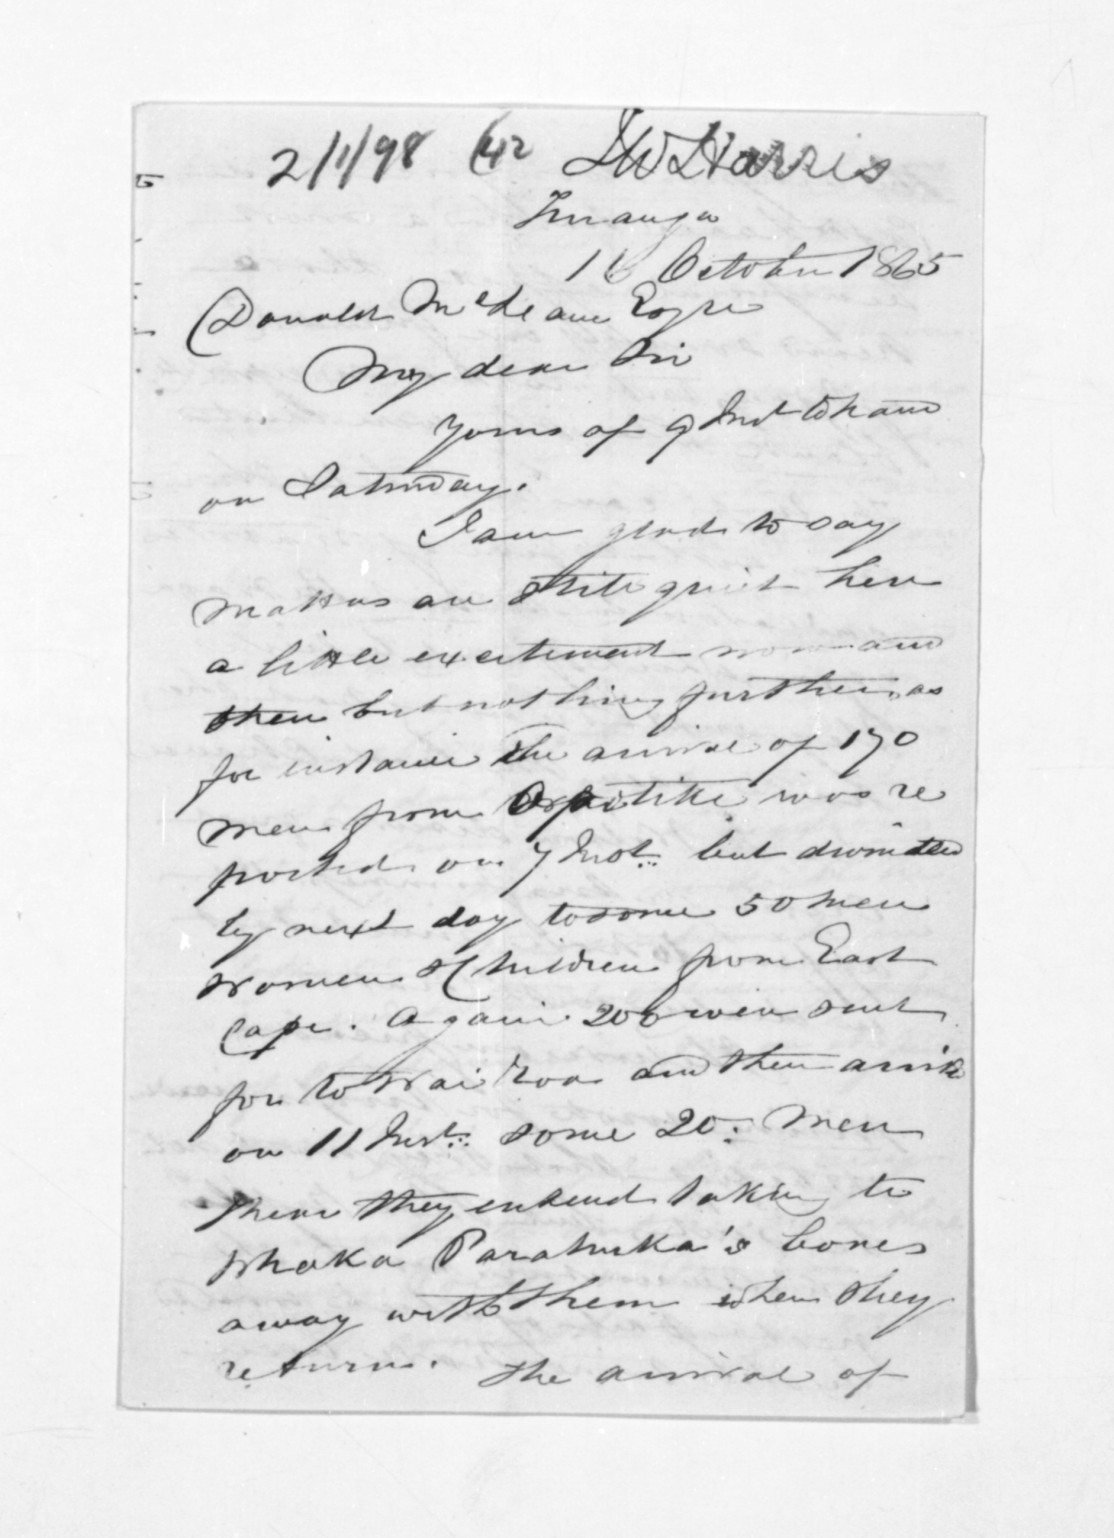 2/1/98 (42 JW Harris
Turanga
16 October 1865
Donald McLean Esqre
My dear Sir
Yours of 9 Inst to hand
on Saturday.
I am glad to say
matters are still quiet here
a little excitement now and
then but nothing further, as
for instance the arrival of 170
men from Opotiki was re
ported on 7 Inst. but dwindled
by next day to some 50 men
women & Children from East
Cape. Again 200 were sent
for to Wairoa and then arrive
on 11 Inst. some 20 Men
these they entend taking te
Whaka Parahuka's bones
away with them when they
return. the arrival of